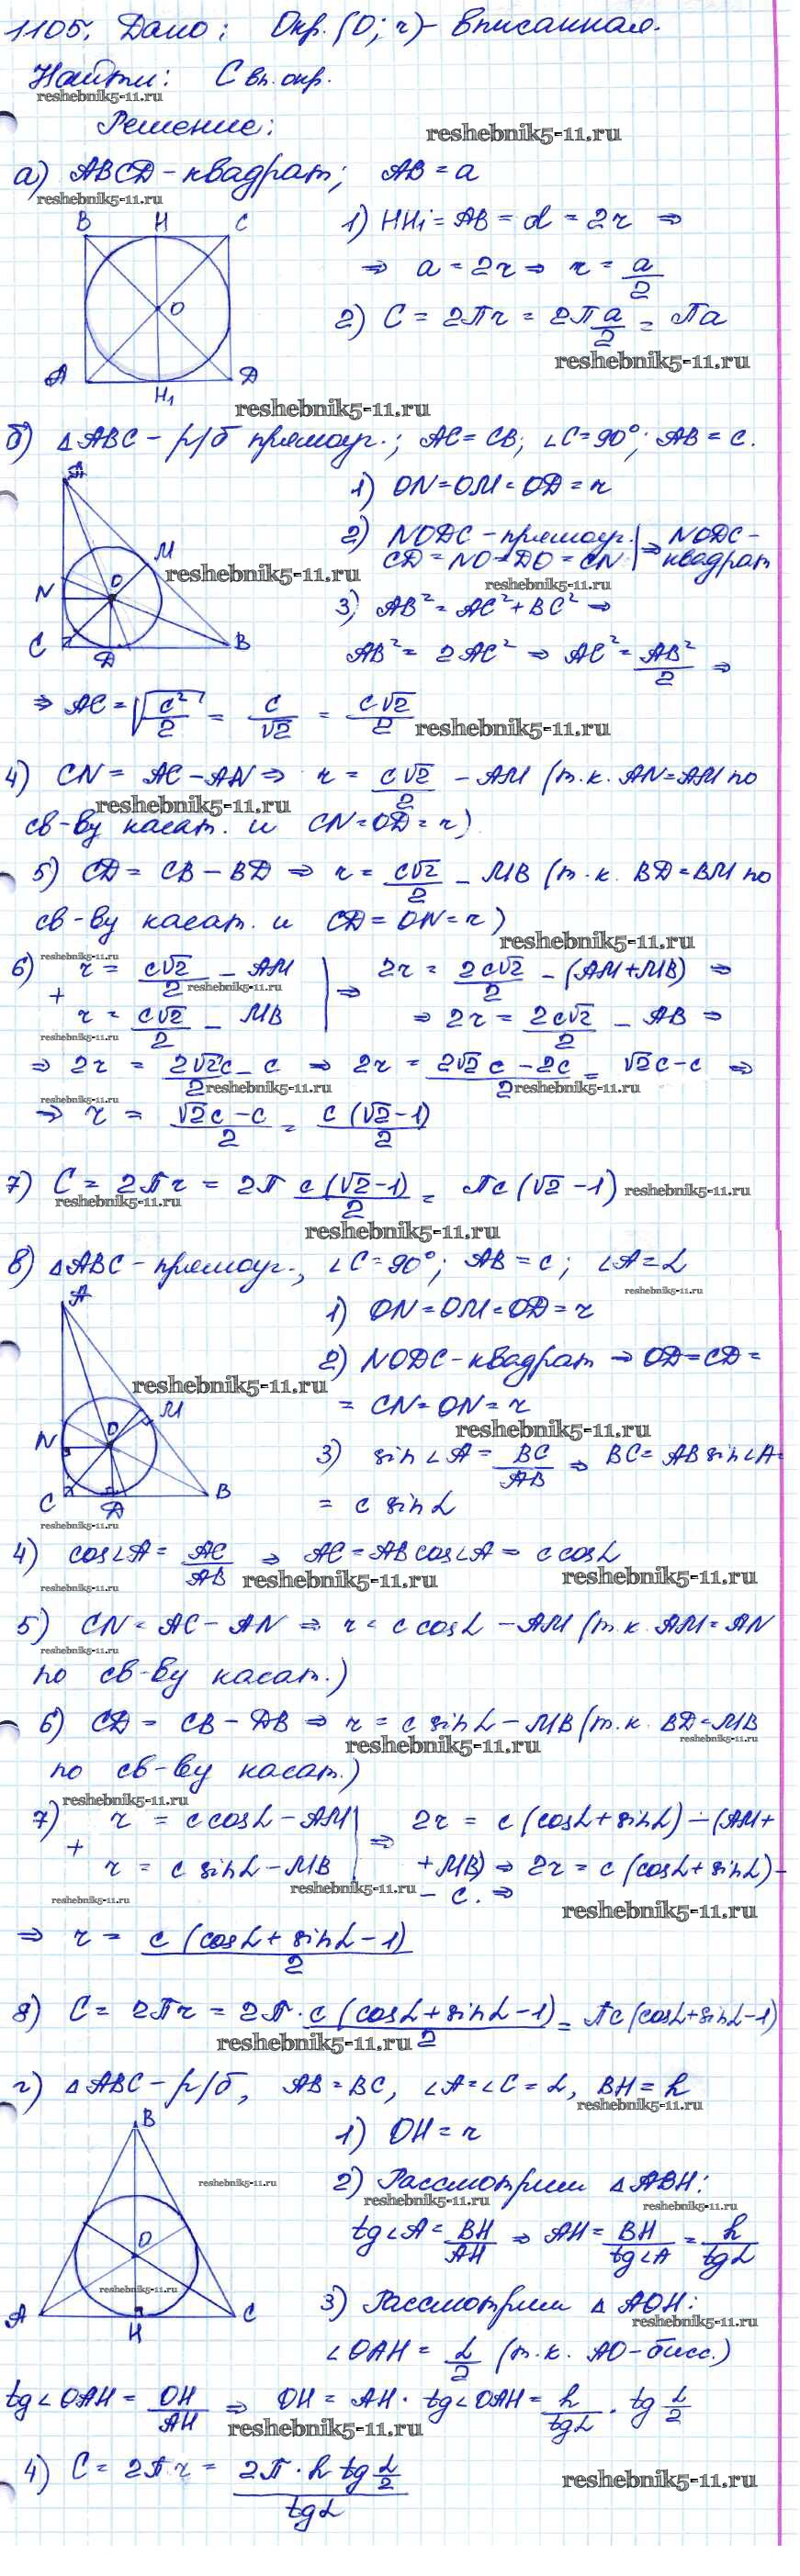 1105. Дано: Окр. (O; r) - вписанная.
Найти: C вп. окр.
reshebnik5-11.ru
Решение:
reshebnik5-11.ru
а) ABCD - квадрат; AB = a
reshebnik5-11.ru
B H C
1) HH₁ = AB = d = 2r ⇒
⇒ a = 2r ⇒ r = a/2
O
2) C = 2πr = 2π a/2 = πa
reshebnik5-11.ru
A H₁ D
reshebnik5-11.ru
б) △ABC - р/б прямоуг.; AC = CB; ∠C = 90°; AB = c.
A
1) ON = OM = OD = r
2) NODC - прямоуг. | ⇒ NODC -
CD = NO = DO = CN | квадрат
M
reshebnik5-11.ru
reshebnik5-11.ru
N O
3) AB² = AC² + BC² ⇒
C D B
AB² = 2AC² ⇒ AC² = AB²/2 ⇒
⇒ AC = √(c²/2) = c/√2 = c√2/2
reshebnik5-11.ru
4) CN = AC - AN ⇒ r = c√2/2 - AM (т.к. AN = AM по
reshebnik5-11.ru
св-ву касат. и CN = OD = r)
5) CD = CB - BD ⇒ r = c√2/2 - MB (т.к. BD = BM по
св-ву касат. и CD = ON = r)
reshebnik5-11.ru
reshebnik5-11.ru
6) r = c√2/2 - AM | ⇒ 2r = 2c√2/2 - (AM + MB) ⇒
reshebnik5-11.ru
+ r = c√2/2 - MB | ⇒ 2r = 2c√2/2 - AB ⇒
reshebnik5-11.ru
⇒ 2r = 2√2c/2 - c ⇒ 2r = (2√2c - 2c)/2 = √2c - c ⇒
reshebnik5-11.ru reshebnik5-11.ru
reshebnik5-11.ru
⇒ r = (√2c - c)/2 = c(√2 - 1)/2
7) C = 2πr = 2π c(√2 - 1)/2 = πc(√2 - 1)
reshebnik5-11.ru
reshebnik5-11.ru
reshebnik5-11.ru
в) △ABC - прямоуг., ∠C = 90°; AB = c; ∠A = α
reshebnik5-11.ru
A
1) ON = OM = OD = r
2) NODC - квадрат ⇒ OD = CD =
reshebnik5-11.ru
= CN = ON = r
M
reshebnik5-11.ru
N O
3) sin∠A = BC/AB ⇒ BC = AB sin∠A =
C D B
= c sinα
reshebnik5-11.ru
4) cos∠A = AC/AB ⇒ AC = AB cos∠A = c cosα
reshebnik5-11.ru reshebnik5-11.ru reshebnik5-11.ru
5) CN = AC - AN ⇒ r = c cosα - AM (т.к. AM = AN
reshebnik5-11.ru
по св-ву касат.)
6) CD = CB - DB ⇒ r = c sinα - MB (т.к. BD = MB
reshebnik5-11.ru reshebnik5-11.ru
по св-ву касат.)
reshebnik5-11.ru
7) r = c cosα - AM | ⇒ 2r = c(cosα + sinα) - (AM +
+ r = c sinα - MB | + MB) ⇒ 2r = c(cosα + sinα) -
reshebnik5-11.ru reshebnik5-11.ru
- c. ⇒
reshebnik5-11.ru
⇒ r = c(cosα + sinα - 1)/2
8) C = 2πr = 2π · c(cosα + sinα - 1)/2 = πc(cosα + sinα - 1)
reshebnik5-11.ru
г) △ABC - р/б, AB = BC, ∠A = ∠C = α, BH = h
reshebnik5-11.ru
B
1) OH = r
reshebnik5-11.ru
2) Рассмотрим △ABH:
reshebnik5-11.ru reshebnik5-11.ru
tg∠A = BH/AH ⇒ AH = BH/tg∠A = h/tgα
O
reshebnik5-11.ru
3) Рассмотрим △AOH:
A H C
reshebnik5-11.ru
∠OAH = α/2 (т.к. AO - бисс.)
tg∠OAH = OH/AH ⇒ OH = AH · tg∠OAH = h/tgα · tg α/2
reshebnik5-11.ru
4) C = 2πr = (2π · h tg α/2)/tgα
reshebnik5-11.ru